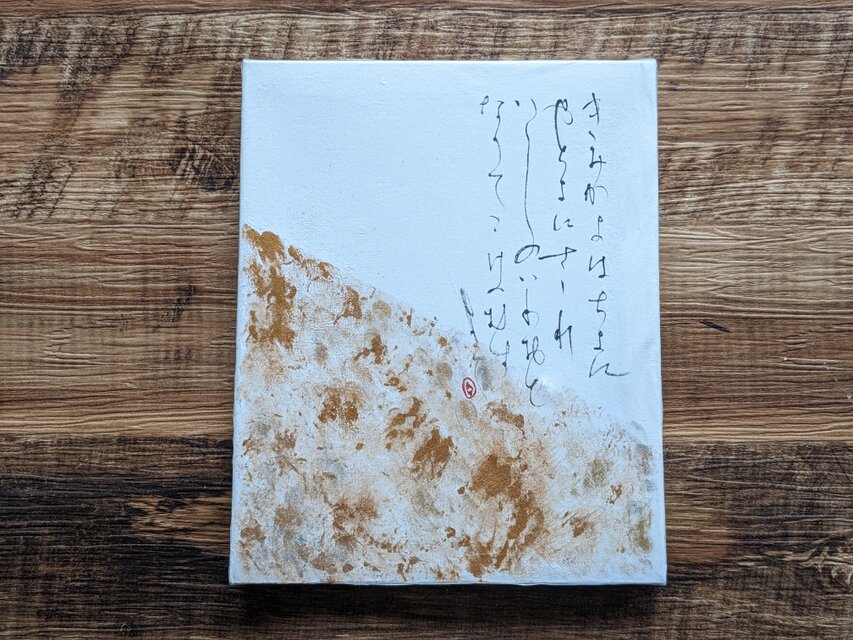 きみかよはちよに
やちよにさゝれ
いしのいはほと
なりてこけのむす
まて